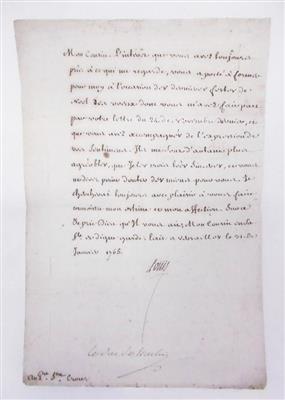 Mon Cousin. L'interêt que vous avés toujours
pris à ce qui me regarde, vous a porté à former
pour moy à l'occasion des dernieres festes de
Noel des voeux dont vous m'avés fait part
par votre lettre du 24 de novembre dernier, et
que vous avés accompagnés de l'expression de
vos sentimens. Ils me sont d'autant plus
agréables, que je les crois sinceres, et vous
ne devés point douter des miens pour vous. Je
chercherai toujours avec plaisir à vous faire
connoitre mon estime et mon affection. Sur ce
Je prie Dieu qu'Il vous ait, Mon Cousin en sa
Ste et digne garde. Ecrit à Versailles le 31 de
Janvier 1765.
Louis